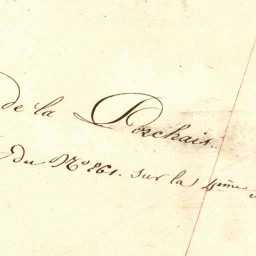 de la Porchais.
du N.º 261. sur la 4eme